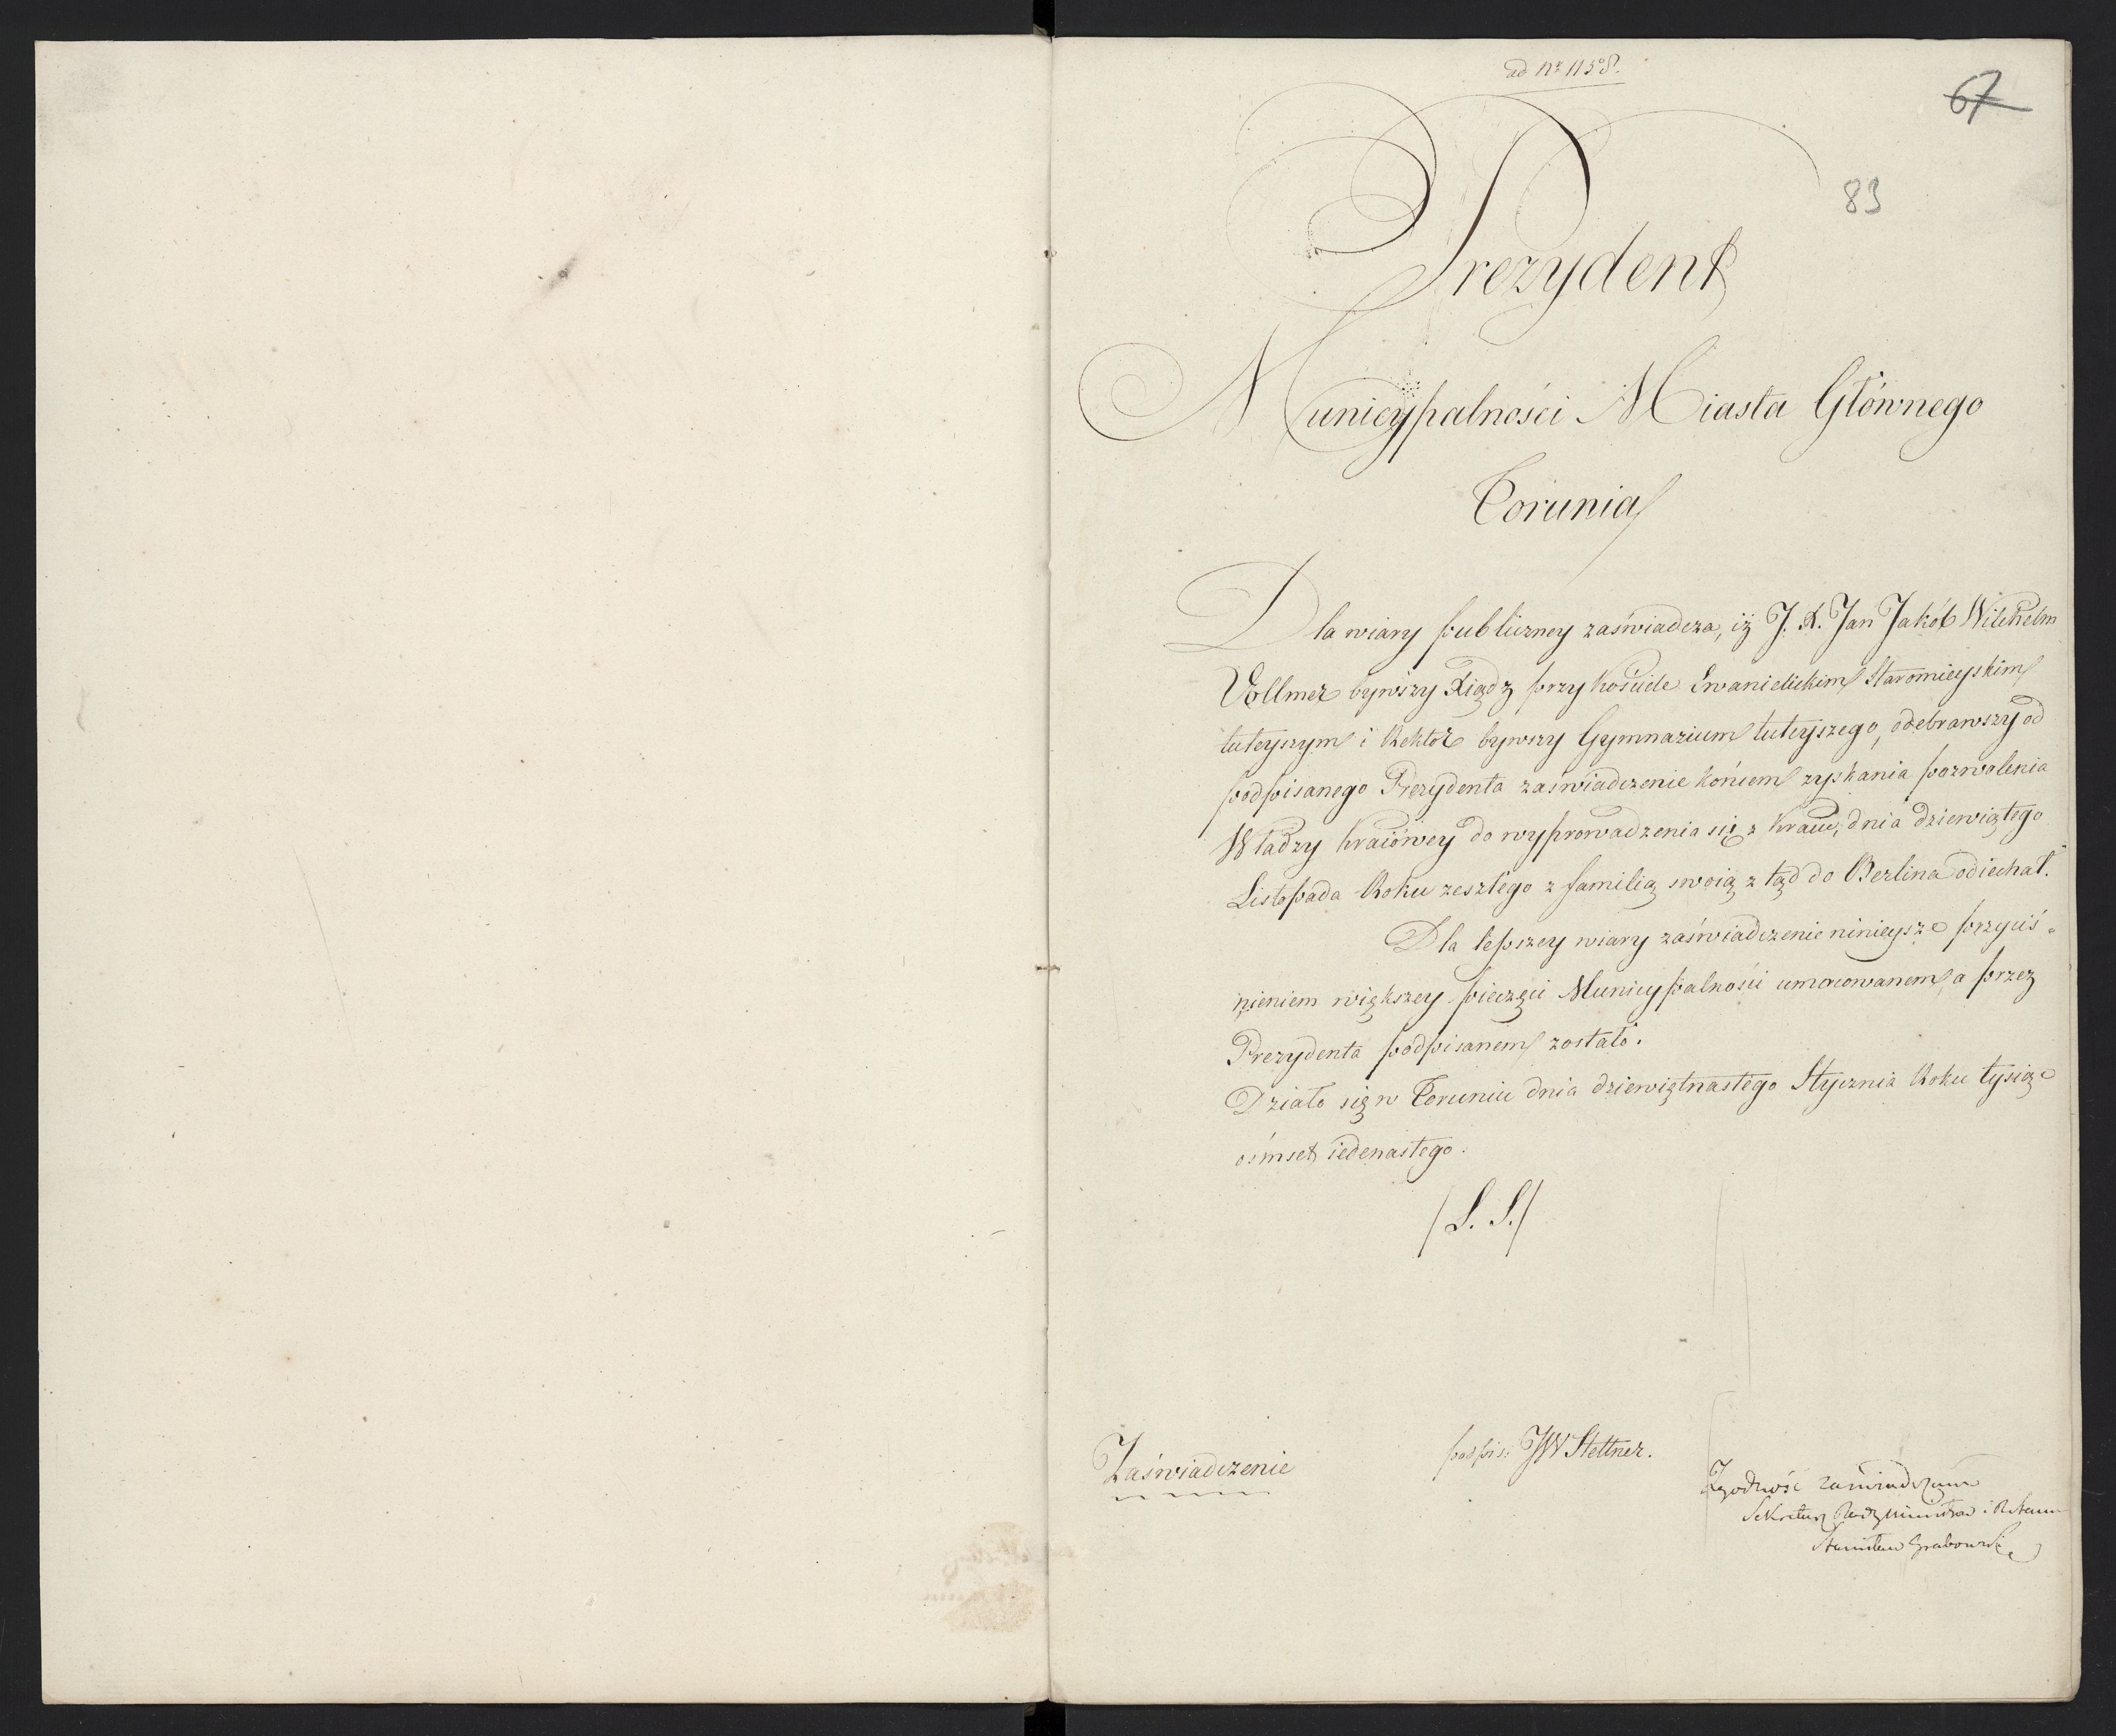 ad Nr 1158.
67
83
Prezydent
Municypalności Miasta Głównego
Torunia
Dla wiary publiczney zaświadcza, iż J. X. Jan Jakób Wilchelm
Vollmer bywszy Xiądz przy kościele Ewanielickim Staromieyskim
tuteyszym i Rektor bywszy Gymnazium tuteyszego, odebrawszy od
podpisanego Prezydenta zaświadczenie końcem zyskania pozwolenia
Władzy kraiówey do wyprowadzenia się z kraiu, dnia dziewiątego
Listopada Roku zeszłego z familią swoią z tąd do Berlina odiechał.
Dla lepszey wiary zaświadczenie ninieysze przyciś-
nieniem większey pieczęci Municypalności umocowanem a przez
Prezydenta podpisanem zostało.
Działo się w Toruniu dnia dziewiętnastego Stycznia Roku tysiąc
ośmset iedenastego.
/L. S./
podpis: JW Stettner.
Zaświadczenie
Zgodność zaświadczam
Sekretarz Rady Ministrów i R. Stanu
Stanisław Grabowski